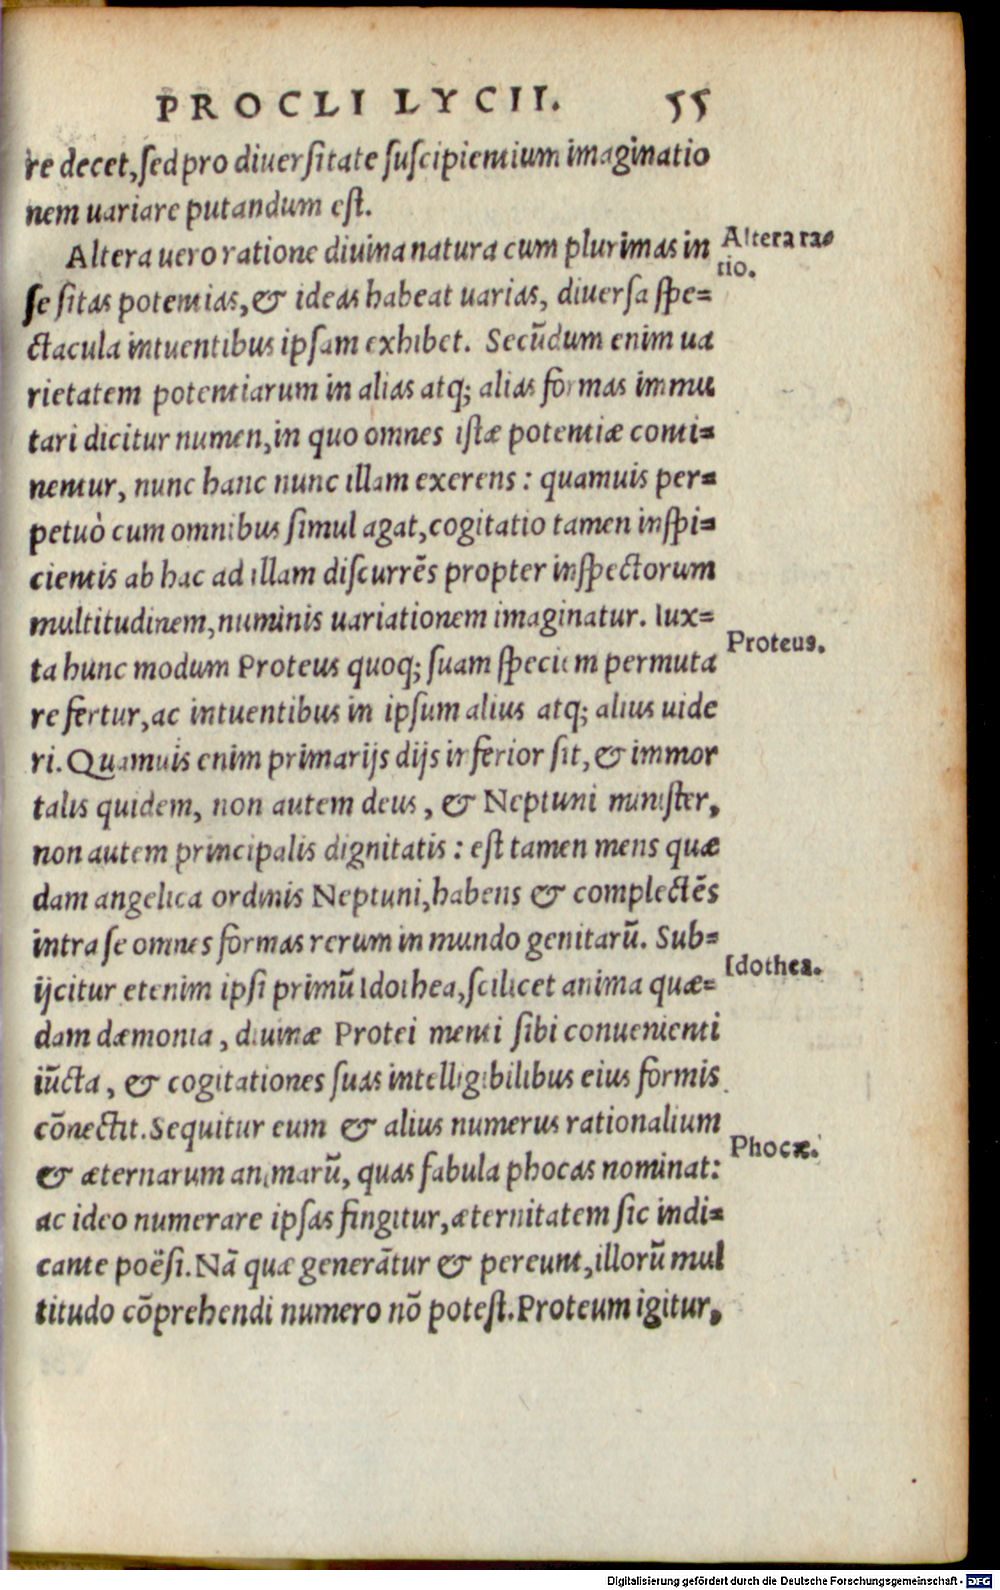 PROCLI LYCII. 55
re decet, sed pro diuersitate suscipientium imaginatio
nem uariare putandum est.
Altera uero ratione diuina natura cum plurimas in
Altera ra=
tio.
se sitas potentias, & ideas habeat uarias, diuersa spe=
ctacula intuentibus ipsam exhibet. Secūdum enim ua
rietatem potentiarum in alias atq; alias formas immu
tari dicitur numen, in quo omnes istæ potentiæ conti=
nentur, nunc hanc nunc illam exerens : quamuis per=
petuò cum omnibus simul agat, cogitatio tamen inspi=
cientis ab hac ad illam discurrēs propter inspectorum
multitudinem, numinis uariationem imaginatur. Iux=
ta hunc modum Proteus quoq; suam speciem permuta
Proteus.
re fertur, ac intuentibus in ipsum alius atq; alius uide
ri. Quamuis enim primarijs dijs inferior sit, & immor
talis quidem, non autem deus, & Neptuni minister,
non autem principalis dignitatis : est tamen mens quæ
dam angelica ordinis Neptuni, habens & complectēs
intra se omnes formas rerum in mundo genitarū. Sub=
ijcitur etenim ipsi primū Idothea, scilicet anima quæ=
Idothea.
dam dæmonia, diuinæ Protei menti sibi conuenienti
iūcta, & cogitationes suas intelligibilibus eius formis
cōnectit. Sequitur eum & alius numerus rationalium
& æternarum animarū, quas fabula phocas nominat:
Phocæ.
ac ideo numerare ipsas fingitur, æternitatem sic indi=
cante poësi. Nā quæ generātur & pereunt, illorū mul
titudo cōprehendi numero nō potest. Proteum igitur,
Digitalisierung gefördert durch die Deutsche Forschungsgemeinschaft - DFG